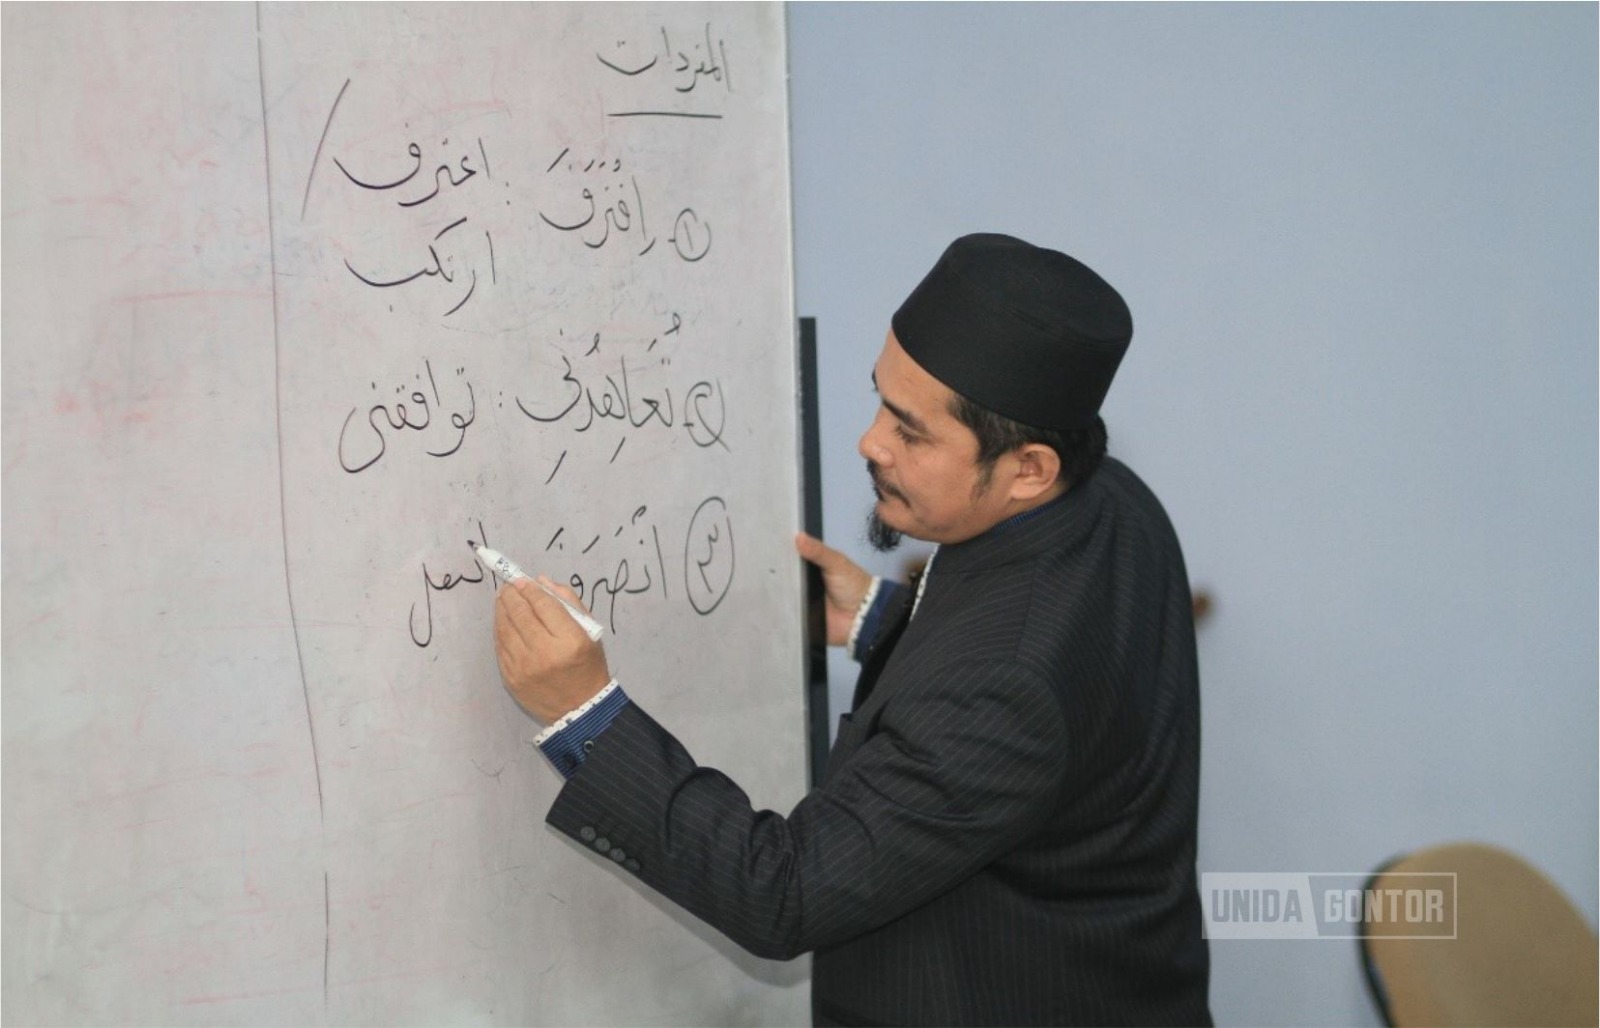 المفردات
① اِقْتَرَفَ : اعترف /
ارتكب
② تُعَاهِدُنِي : توافقني
③ انْصَرَفَ انتقل
UNIDA GONTOR